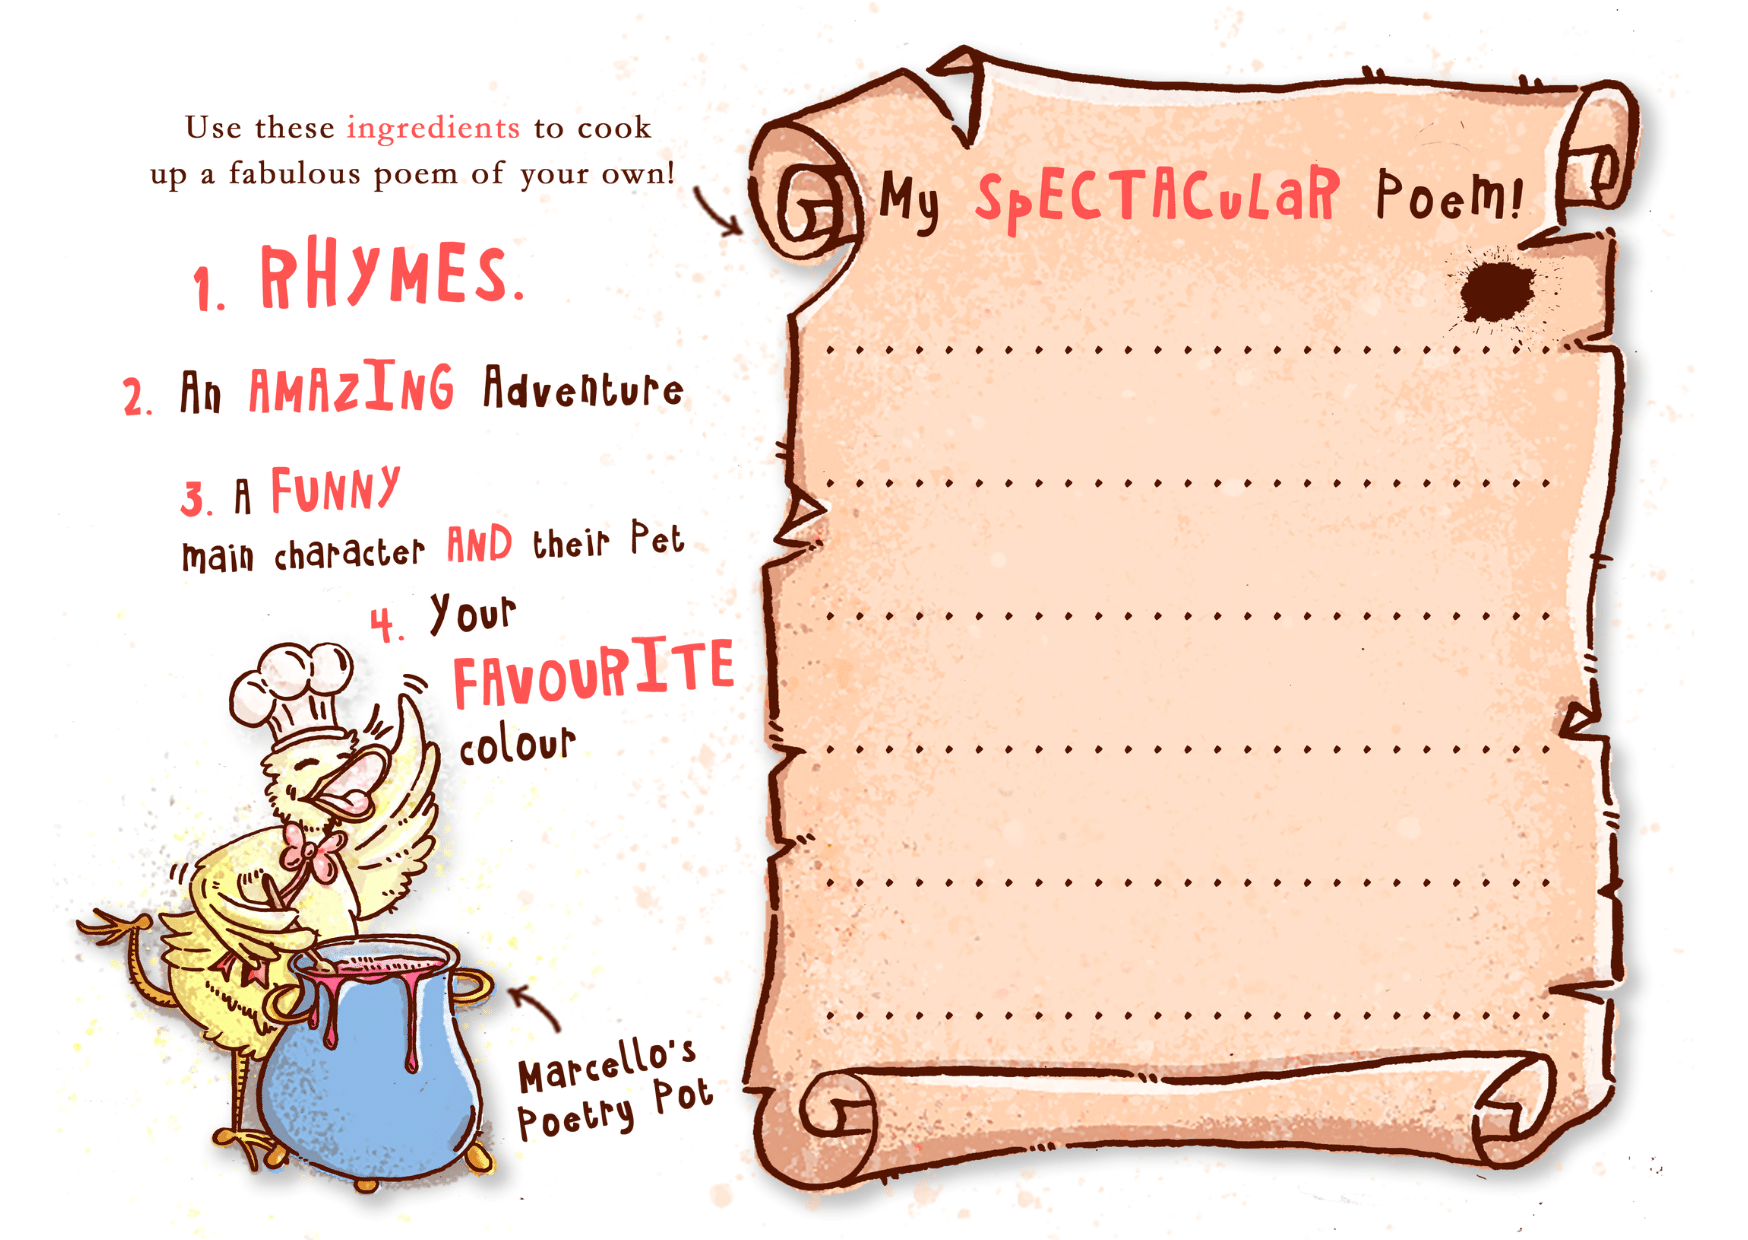 Use these ingredients to cook
up a fabulous poem of your own!
1. RHYMES.
2. An AMAZING Adventure
3. A FUNNY
main character AND their Pet
4. Your
FAVOURITE
colour
Marcello's
Poetry Pot
My SpECTACuLaR Poem!